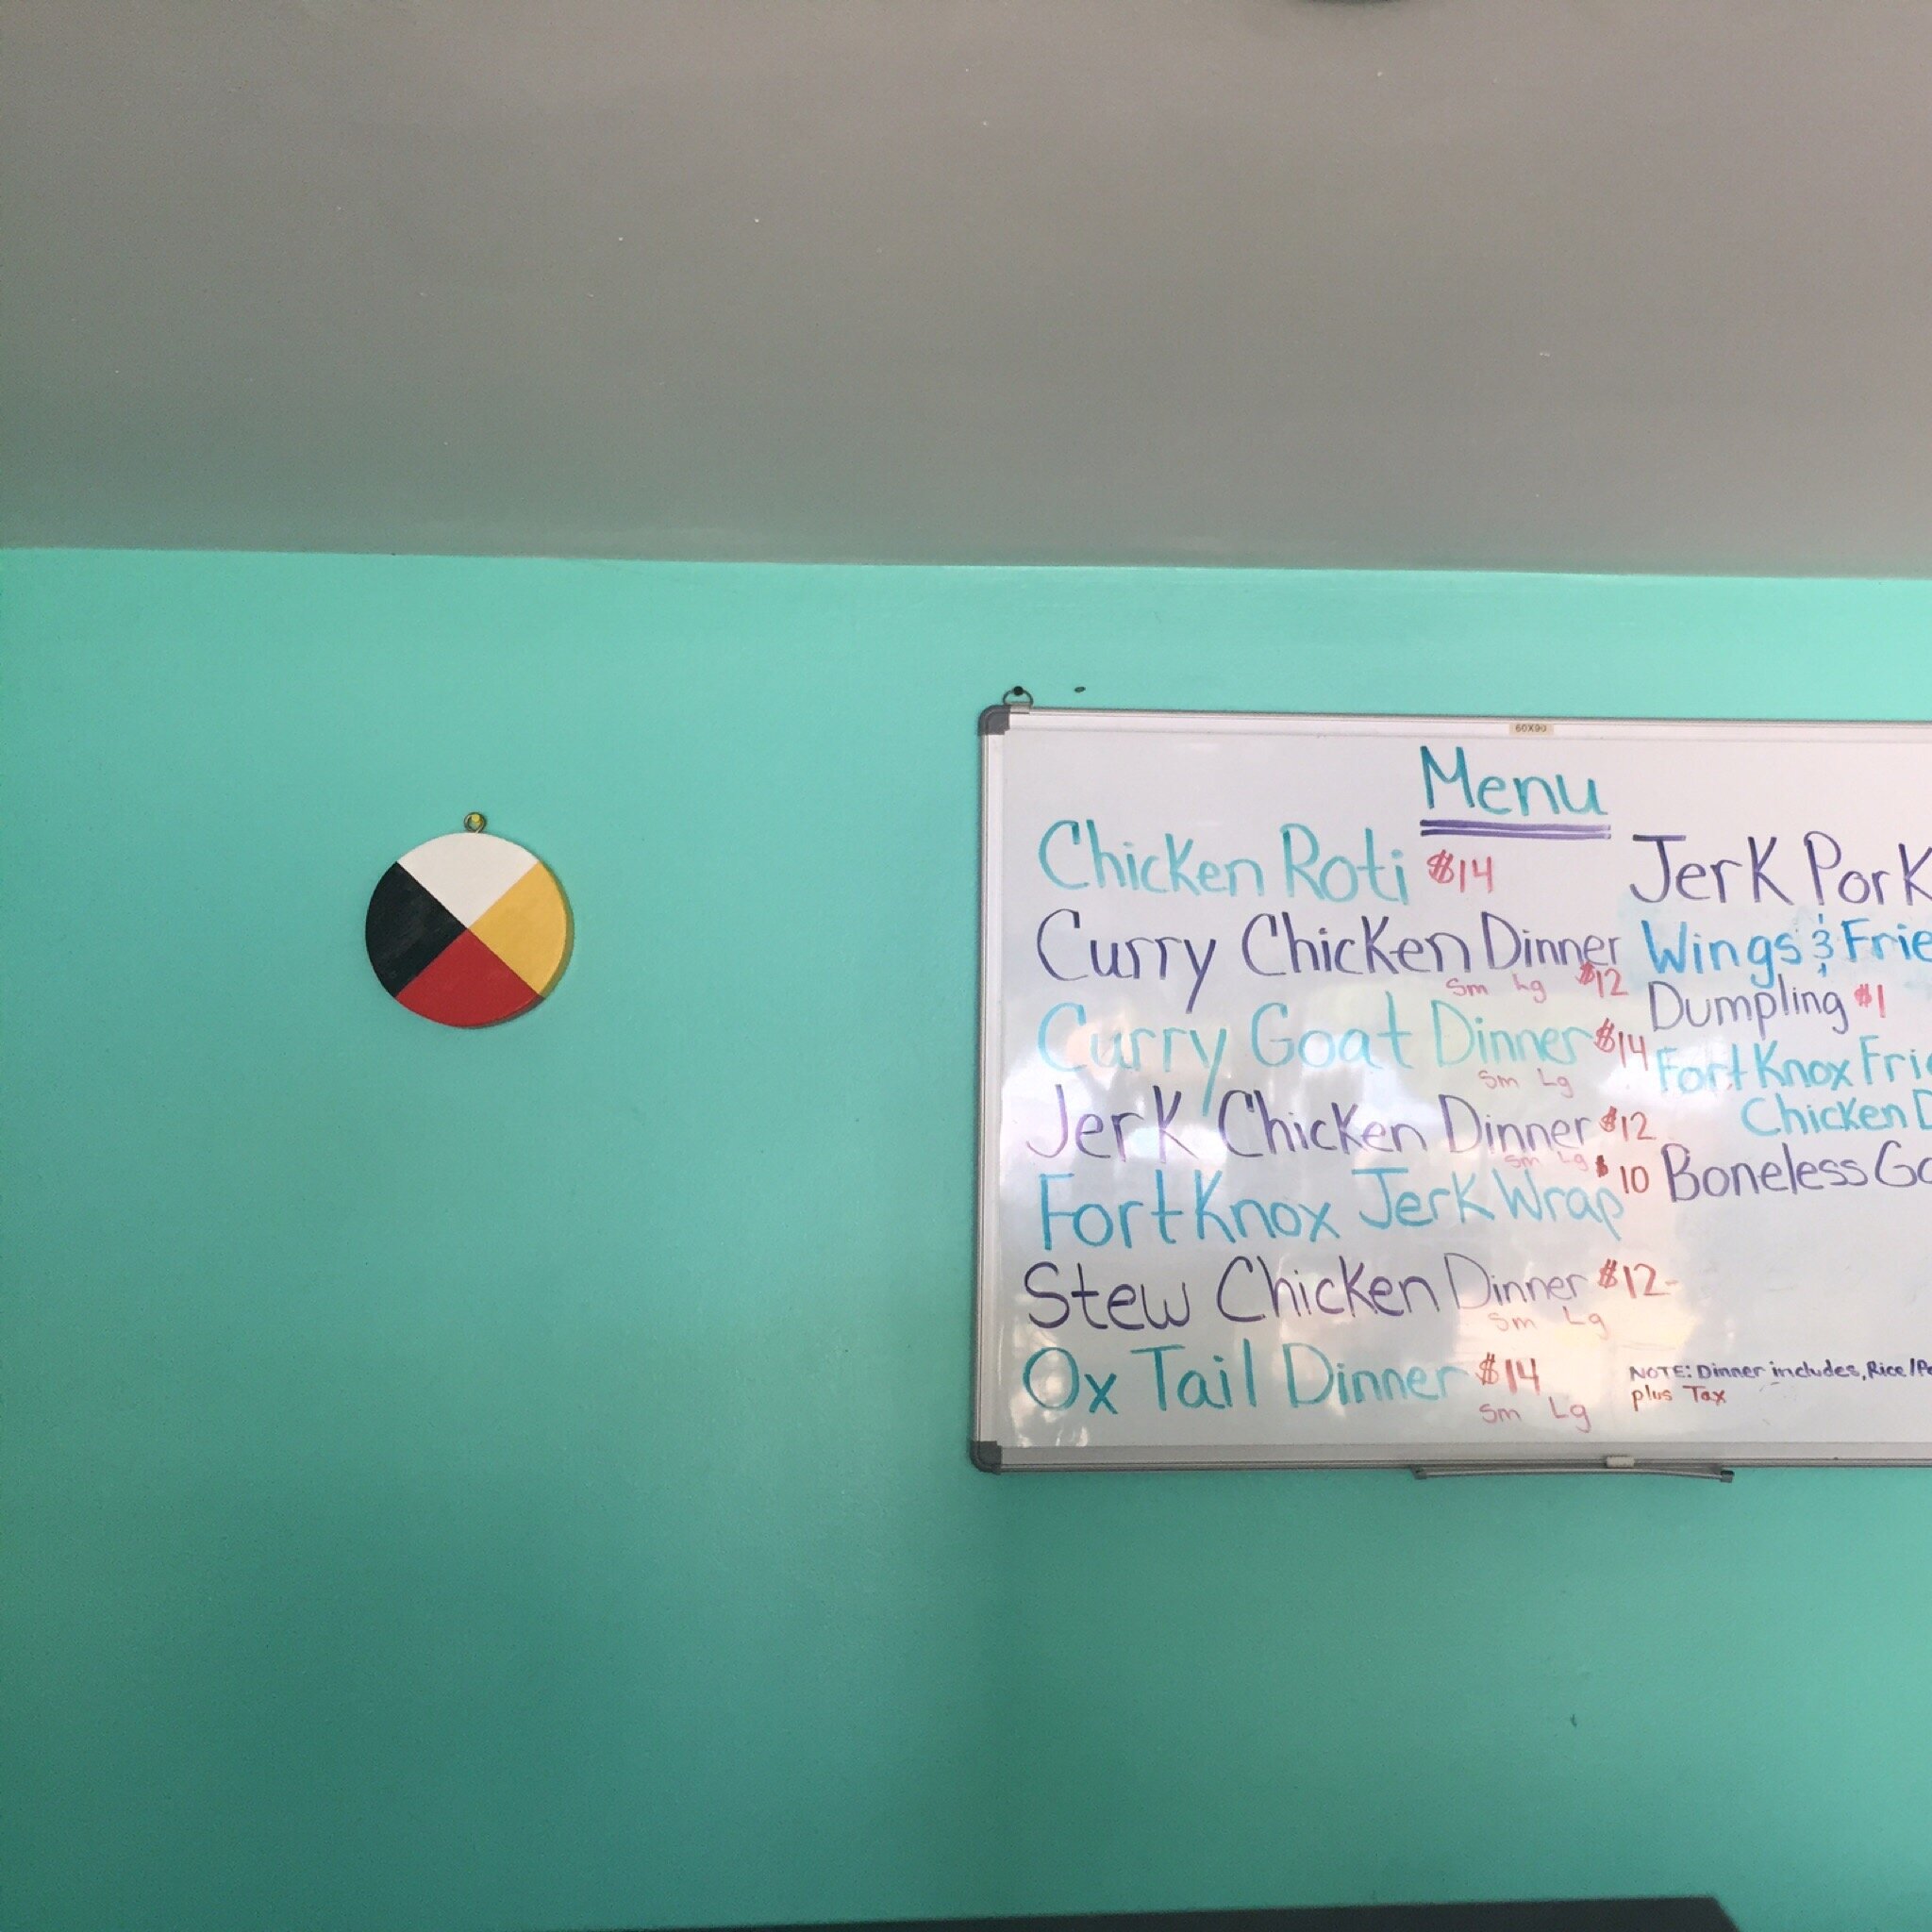 60X90
Menu
Chicken Roti $14
Curry Chicken Dinner
Sm Lg $12
Curry Goat Dinner $14
Sm Lg
Jerk Chicken Dinner $12
Sm Lg
Fort Knox Jerk Wrap $10
Stew Chicken Dinner $12
Sm Lg
Ox Tail Dinner $14
Sm Lg
Jerk Pork
Wings & Frie
Dumpling $1
Fort Knox Fri
Chicken D
Boneless Go
NOTE: Dinner includes, Rice/Pe
plus Tax